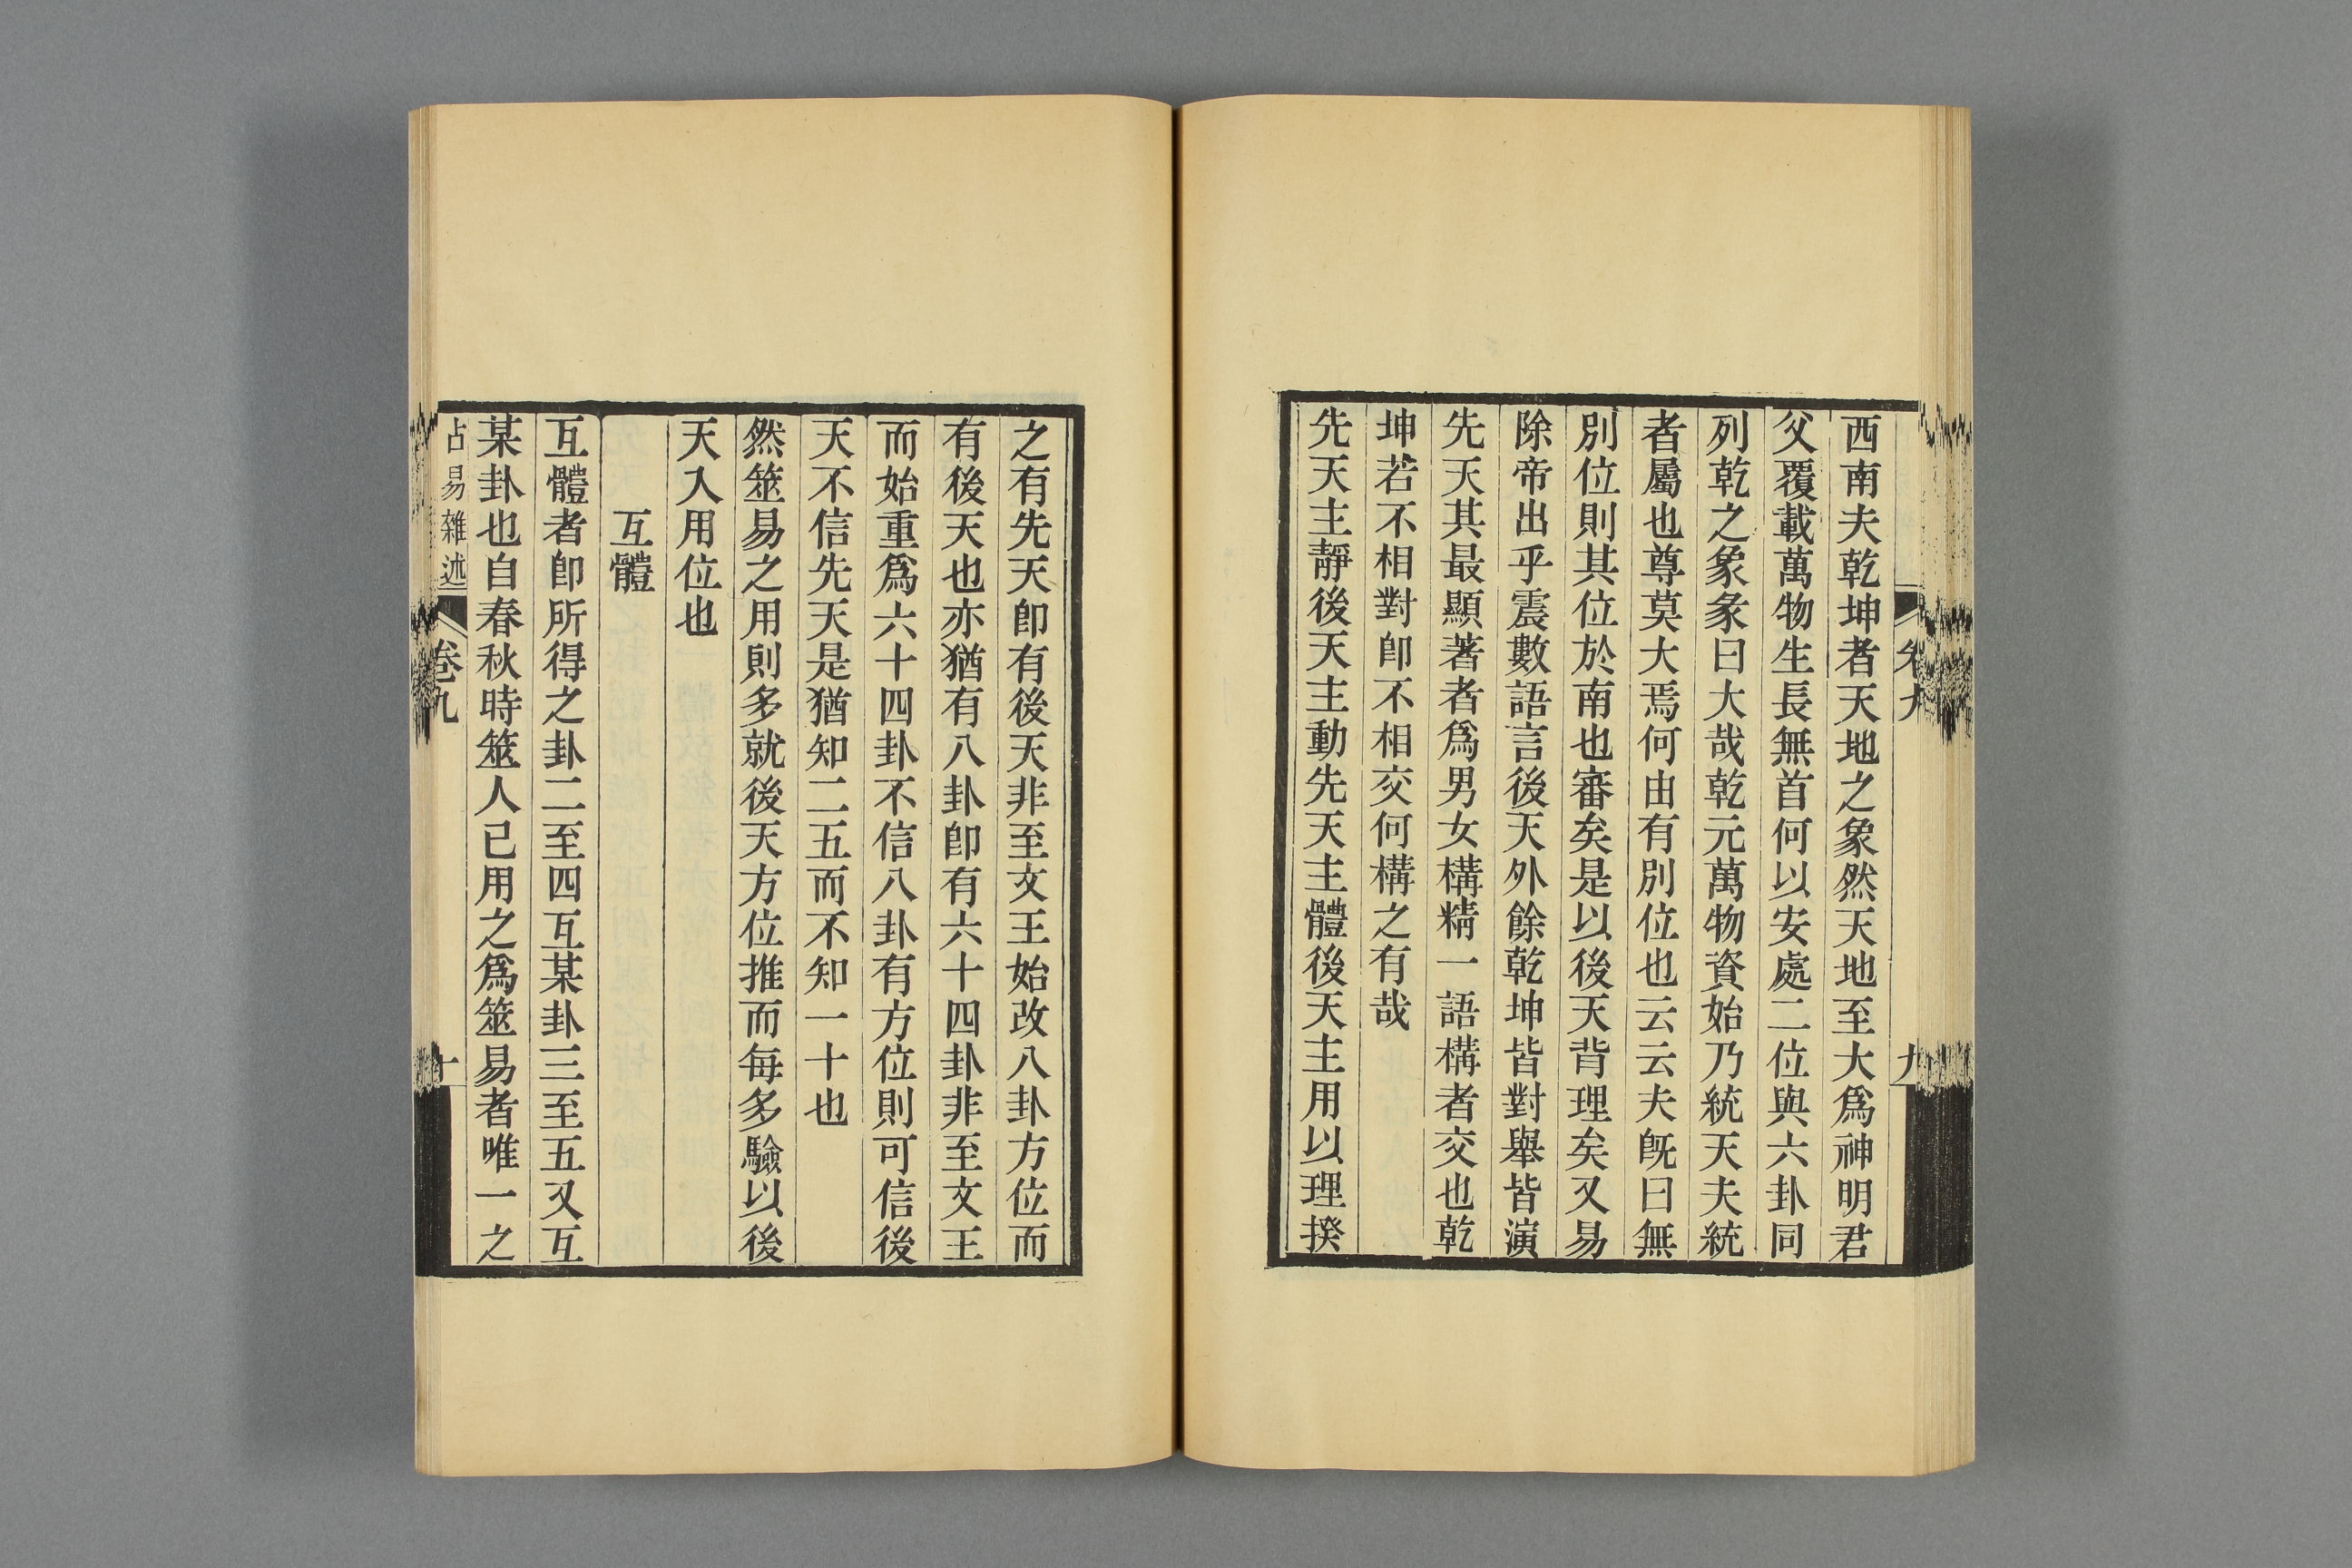 西南夫乾坤者天地之象然天地至大爲神明君
父覆載萬物生長無首何以安處二位與六卦同
列乾之象彖曰大哉乾元萬物資始乃統天夫統
者屬也尊莫大焉何由有別位也云云夫旣曰無
別位則其位於南也審矣是以後天背理矣又易
除帝出乎震數語言後天外餘乾坤皆對舉皆演
先天其最顯著者爲男女構精一語構者交也乾
坤若不相對卽不相交何構之有哉
先天主靜後天主動先天主體後天主用以理揆
卷九
九
之有先天卽有後天非至文王始改八卦方位而
有後天也亦猶有八卦卽有六十四卦非至文王
而始重爲六十四卦不信八卦有方位則可信後
天不信先天是猶知二五而不知一十也
然筮易之用則多就後天方位推而每多驗以後
天入用位也
互體
互體者卽所得之卦二至四互某卦三至五又互
某卦也自春秋時筮人已用之爲筮易者唯一之
占易雜述
卷九
十